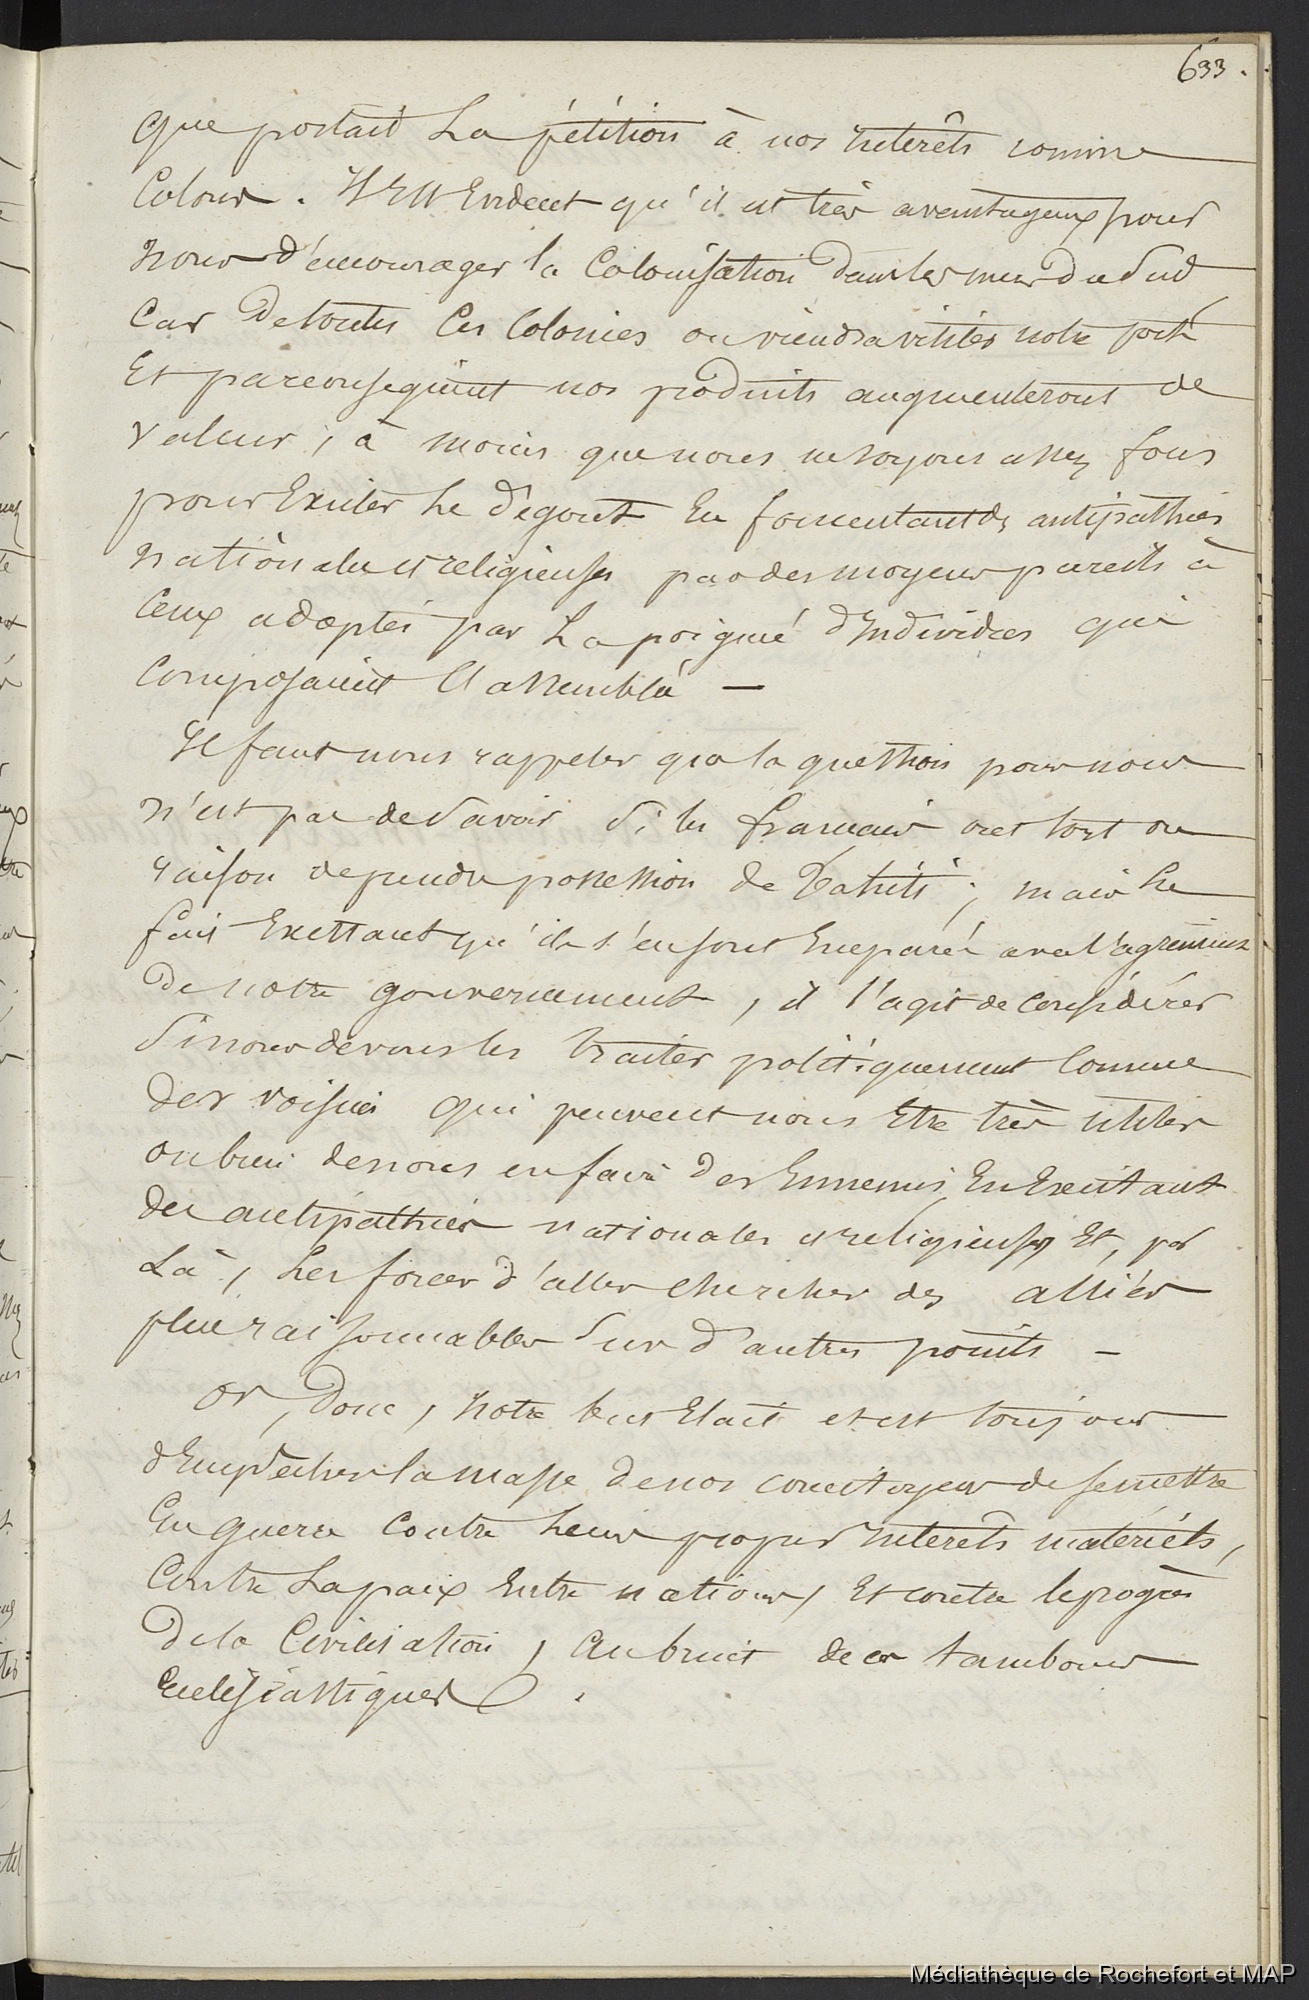 633.
que portait La pétition à nos intérêts comme
Colons. Il Est Evident qu'il est très avantageux pour
nous d'encourager la Colonisation dans les mers du Sud
Car De toutes Ces Colonies on viendra visiter notre port
Et par consequent nos produits augmenterons de
valeur ; à moins que nous ne soyons assez fous
pour Exciter Le Dégout En fomentant des antipathies
nationales et religieuses par des moyens pareils à
Ceux adoptés par La poigné d'Individus qui
Composaient l'assemblée —
Il faut nous rappeler que la question pour nous
n'est pas de Savoir Si les français ont tort ou
raison de prendre possession de Tahiti ; mais Le
fait Existant qu'ils s'en sont Emparés avec l'agrément
De notre gouvernement, il s'agit de Considérer
Si nous devons les traiter politiquement Comme
des voisins qui peuvent nous Etre très utiles
ou bien de nous en faire des Ennemis En Excitant
des antipathies nationales et religieuses Et, par
Là, Les forcer d'aller chercher des alliés
plus raisonnables Sur d'autres points —
Or, Donc, notre but Etait et est toujours
d'Empêcher la masse de nos concitoyens de se mettre
En guerre Contre Leurs propres intérêts matériels,
Contre La paix Entre nations, Et contre le progrès
De la Civilisation, au bruit de ces tambours
Ecclésiastiques.
Médiathèque de Rochefort et MAP